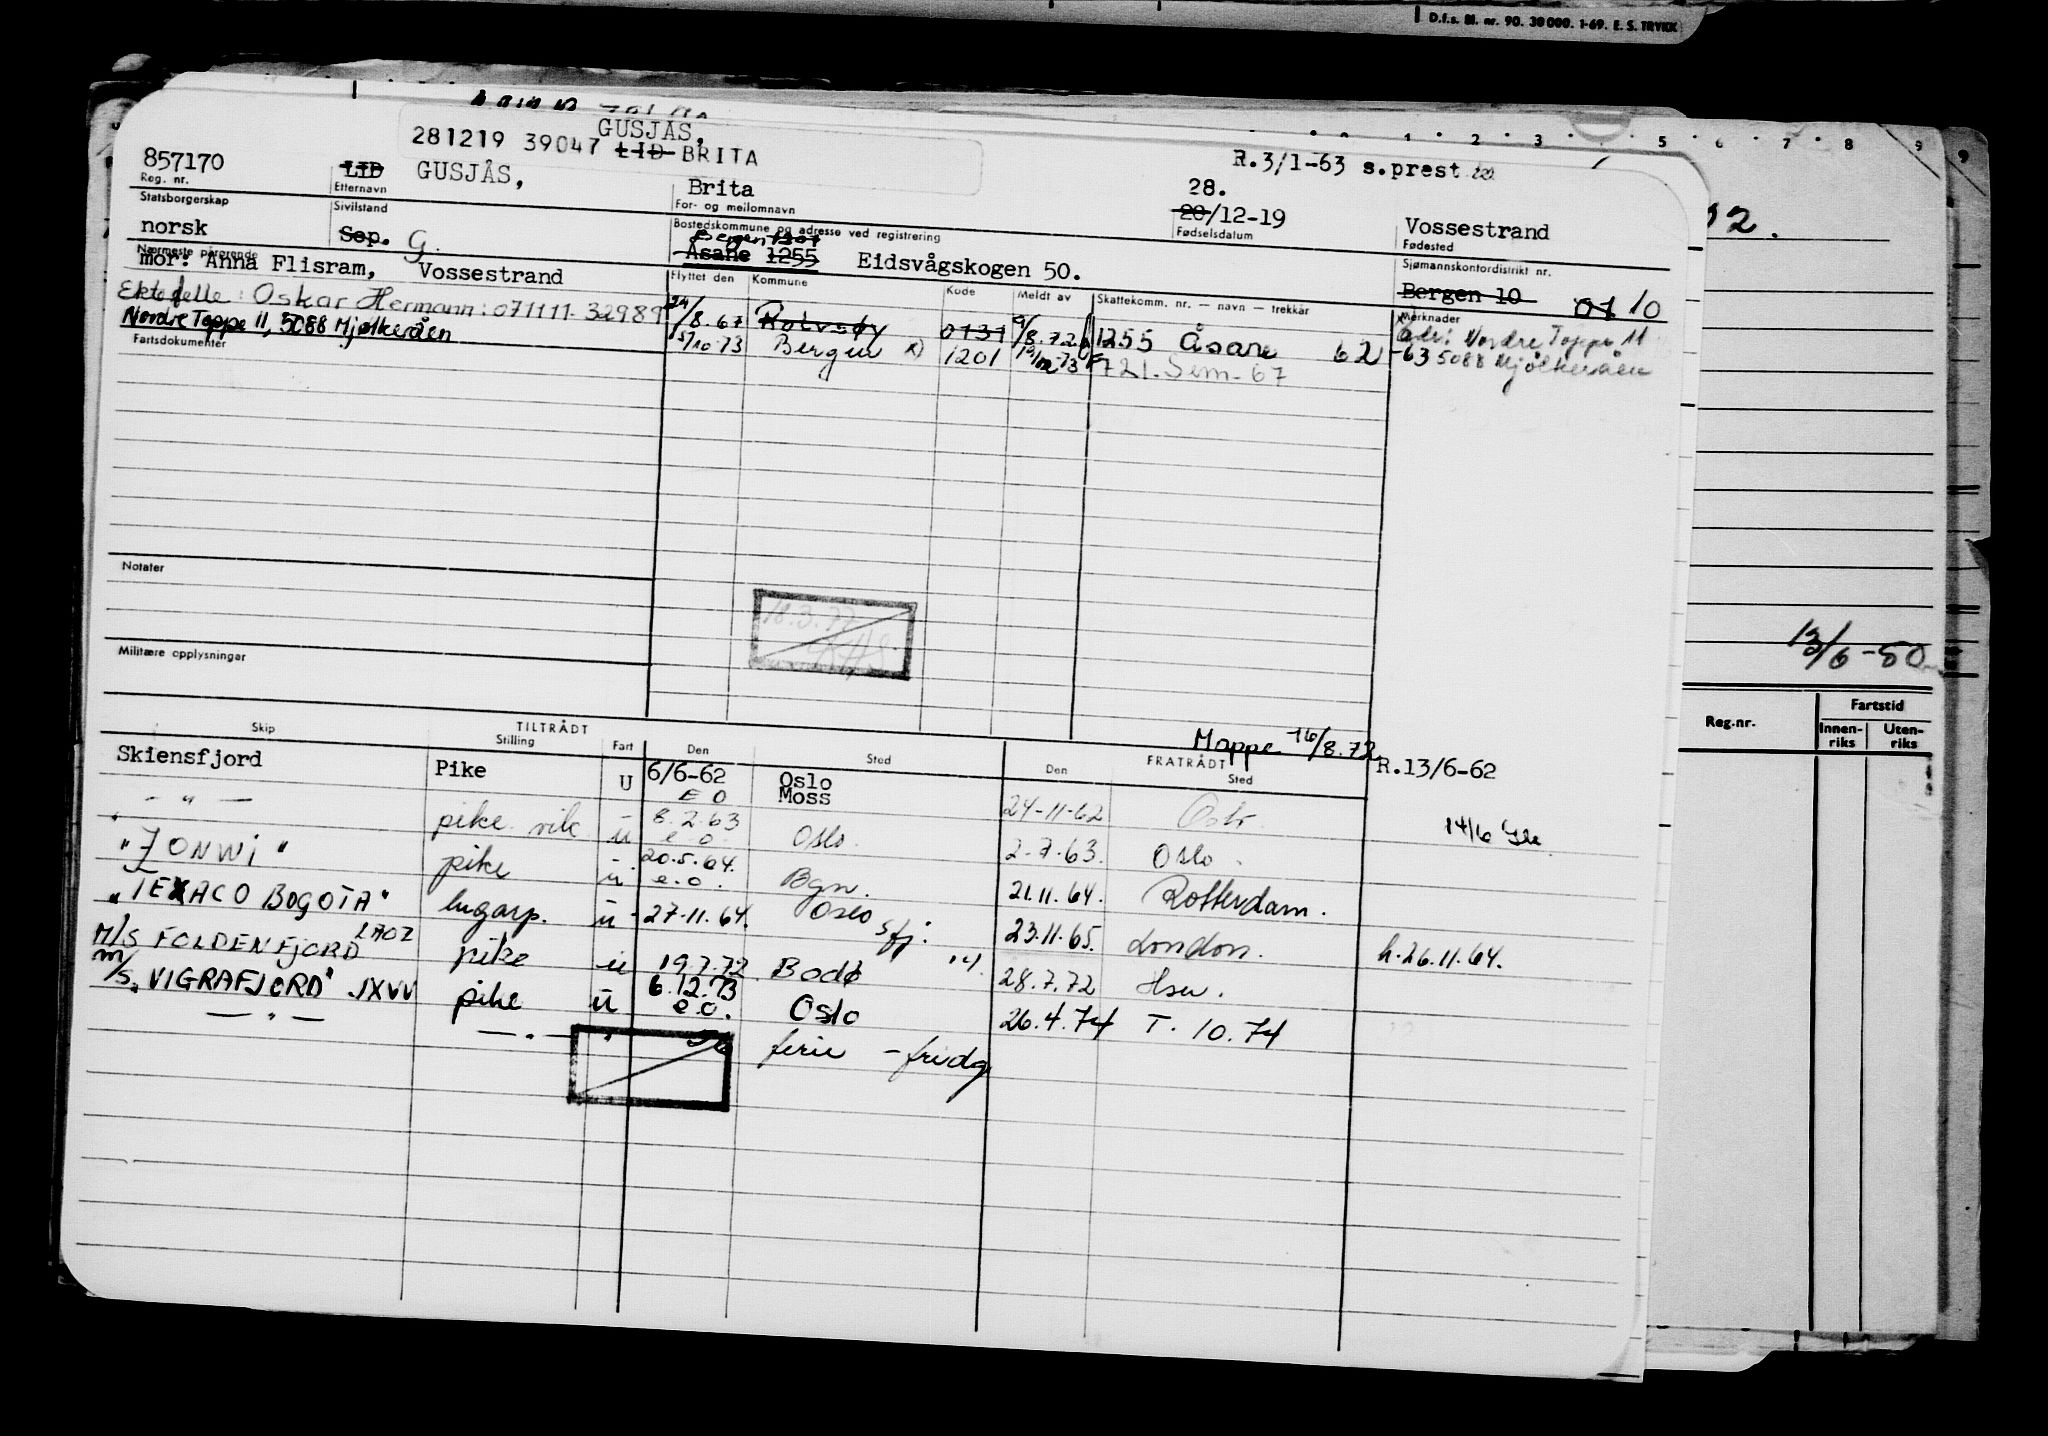 D.f.s. Bl. nr. 90. 30 000. 1-69. E. S. TRYKK
1 2 3 5 6 7 8 9 9
GUSJÅS,
281219 39047 LID BRITA
R.3/1-63 s.prest
857170 LID GUSJÅS, Brita 28.
20/12-19 Vossestrand
Reg. nr. Etternavn For- og mellomnavn Fødselsdatum Fødested
Statsborgerskap Sivilstand Bostedskommune og adresse ved registrering Sjømannskontordistrikt nr.
norsk Sep. G. Bergen 1301
Åsane 1255 Eidsvågskogen 50. Bergen 10 01 10
Nærmeste pårørende
mor: Anna Flisram, Vossestrand
Flyttet den Kommune Kode Meldt av Skattekomm. nr. — navn — trekkår Merknader
Ektefelle: Oskar Hermann: 071111-32989
Nordre Toppe 11, 5088 Mjølkeråen
24/8.67 Rolvsøy 0131 9/8.72 1255 Åsane 62-63
adr: Nordre Toppe 11
5088 Mjølkeråen
15/10 73 Bergen x) 1201 721. Sem - 67
Fartsdokumenter
Notater
18.3.77
Militære opplysninger
13/6-50
Reg.nr. Fartstid
Innen-riks Uten-riks
Mappe 16/8.72
TILTRÅDT FRATRÅDT
Skip Stilling Fart Den Sted Den Sted
R.13/6-62
Skiensfjord Pike U 6/6-62 Oslo
E O Moss 24-11-62
— " — pike vik 8.2.63
u e o Oslo. 2.7.63. Oslo.
14/6
"JONWI" pike u 20.5.64.
e.o. Bgn. 21.11.64. Rotterdam.
"TEXACO BOGOTA" lugarp. u 27-11-64. Oslo 23.11.65. London. h.26.11.64.
M/S FOLDENFJORD LAOZ pike u 19.7.72 Bodø 28.7.72 Hsu.
M/S "VIGRAFJORD" JXVV pike u 6.12.73
e.o. Oslo 26.4.74 T. 10.74
— " — — " — " ferie - fridg